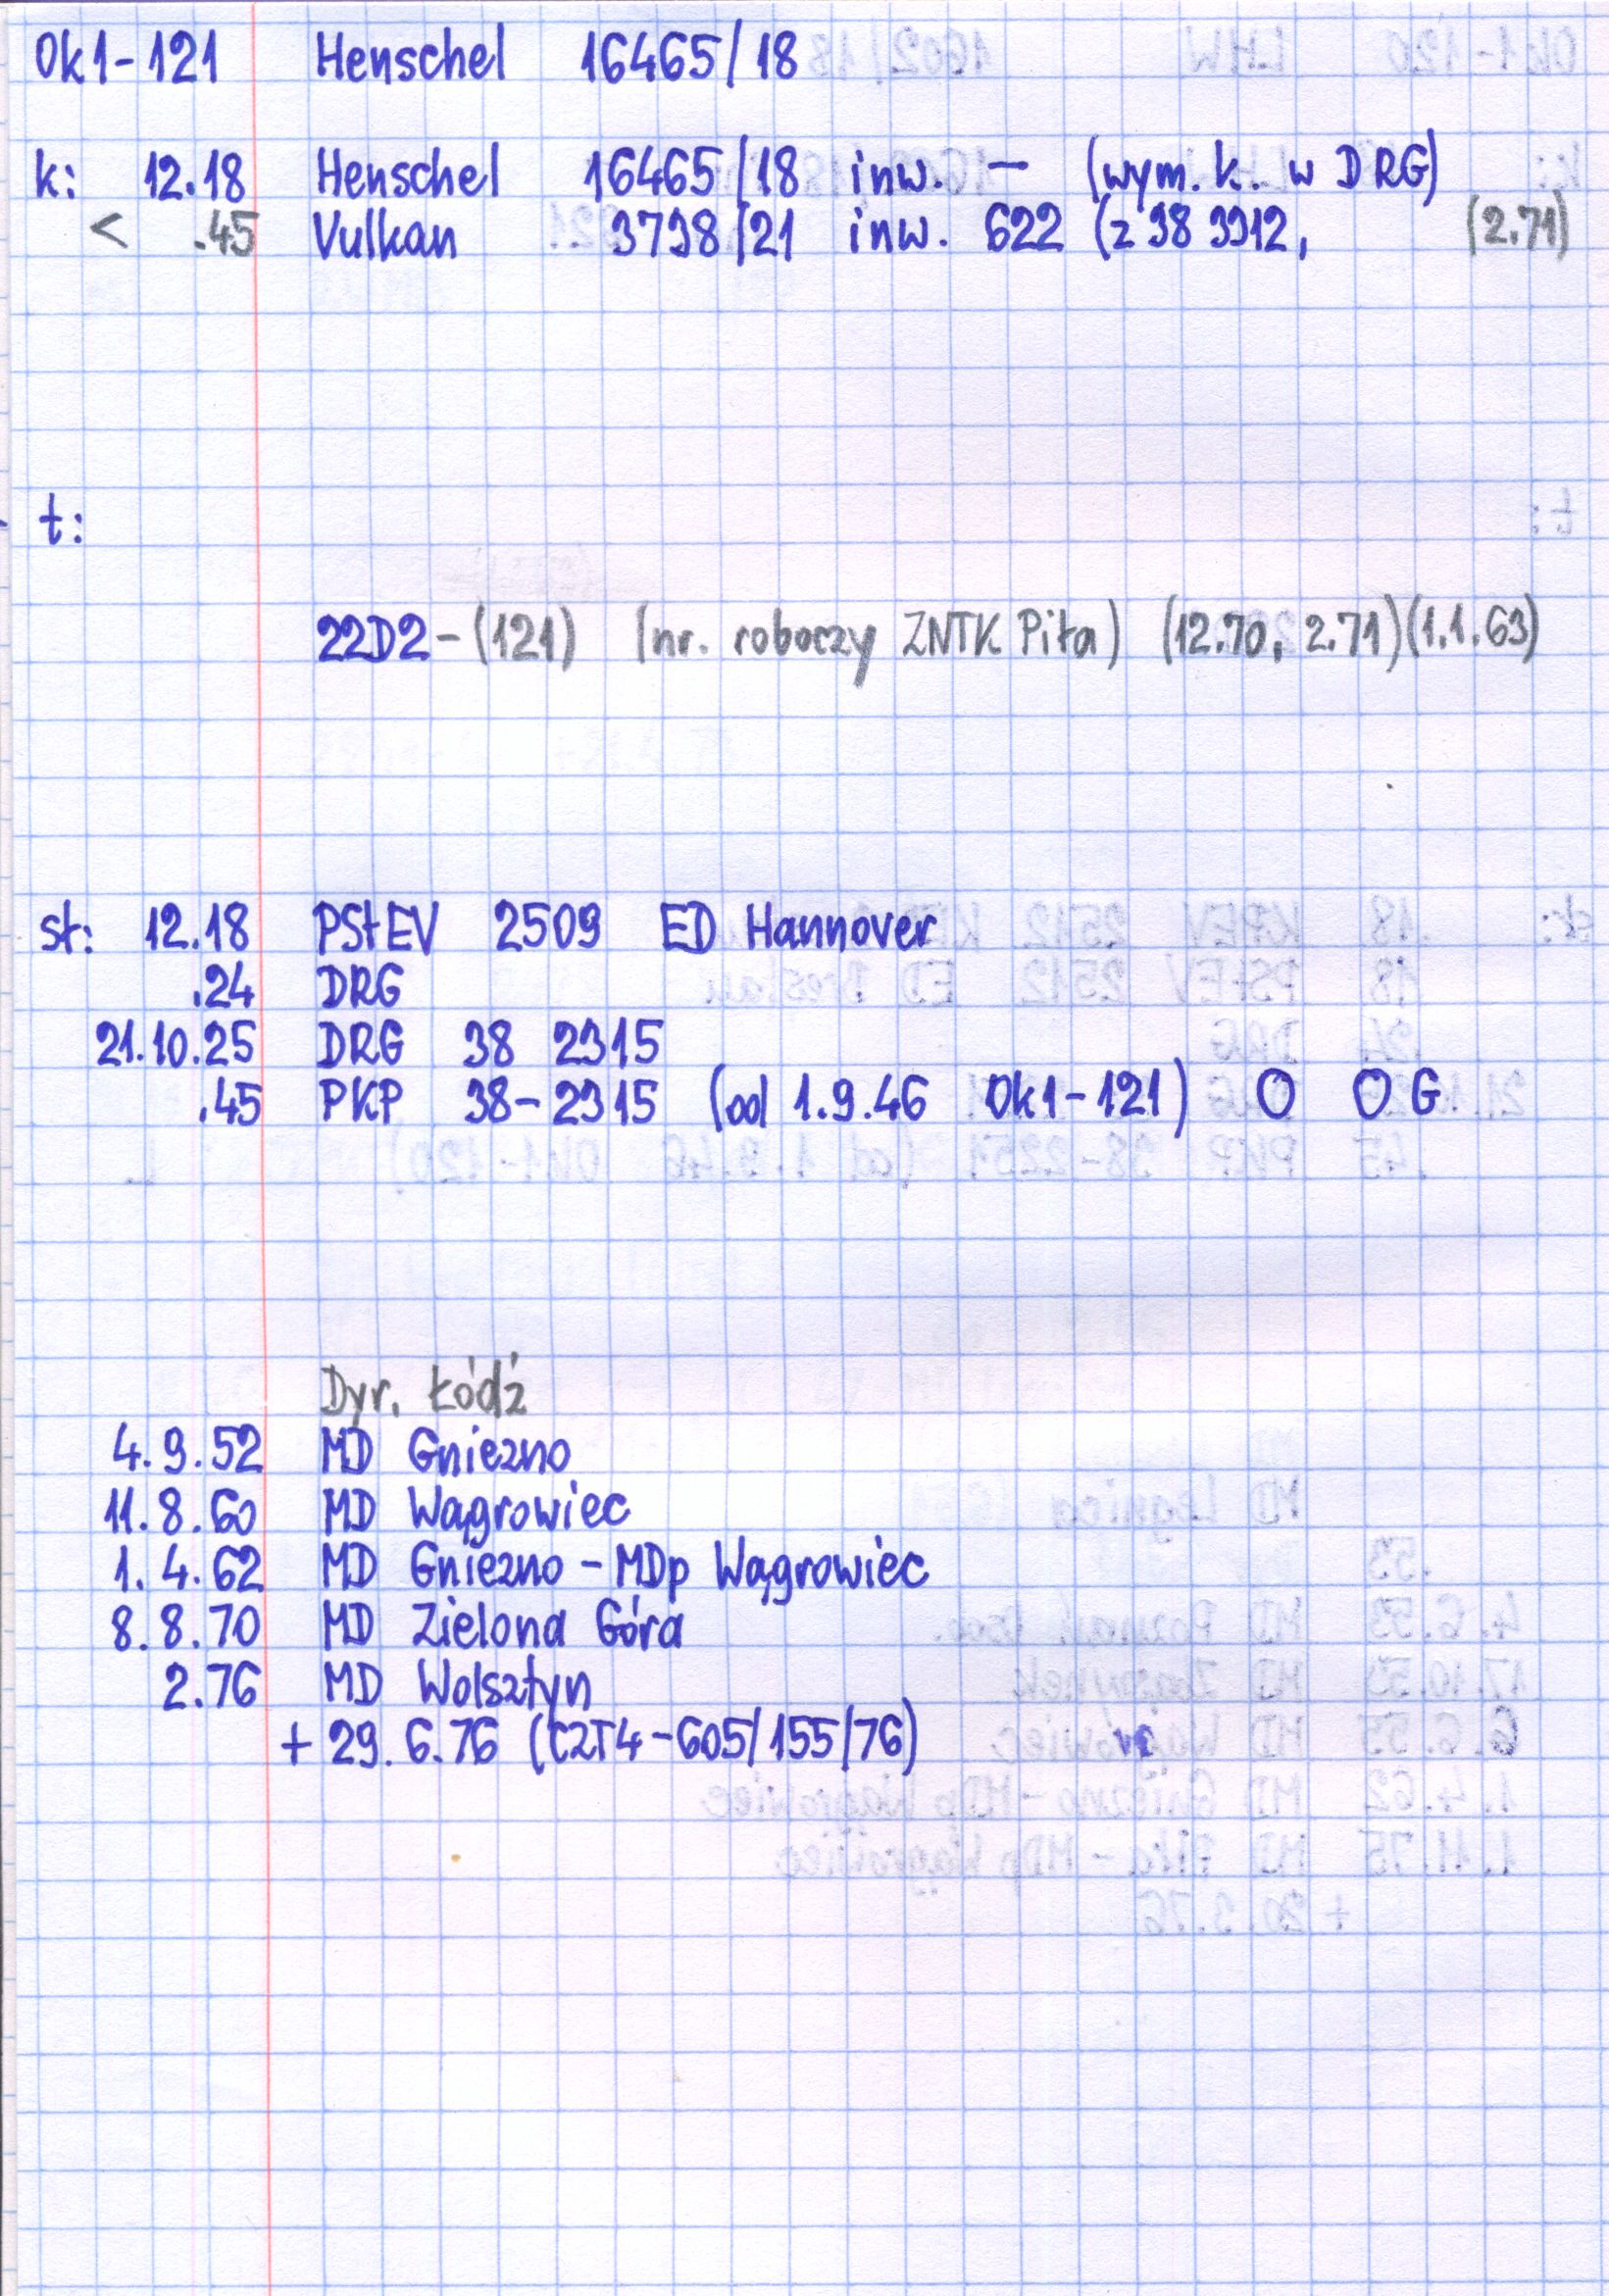 Ok1-121 Henschel 16465/18
k: 12.18 Henschel 16465/18 inw. — (wym. k. w DRG)
< .45 Vulkan 3798/21 inw. 622 (z 38 3912, (2.71)
t:
22D2-(121) (nr. roboczy ZNTK Piła) (12.70, 2.71)(1.1.63)
st: 12.18 PStEV 2509 ED Hannover
.24 DRG
21.10.25 DRG 38 2315
.45 PKP 38-2315 (od 1.9.46 Ok1-121) O O G
Dyr. Łódź
4.9.52 MD Gniezno
11.8.60 MD Wągrowiec
1.4.62 MD Gniezno - MDp Wągrowiec
8.8.70 MD Zielona Góra
2.76 MD Wolsztyn
+ 29.6.76 (CZT4-605/155/76)